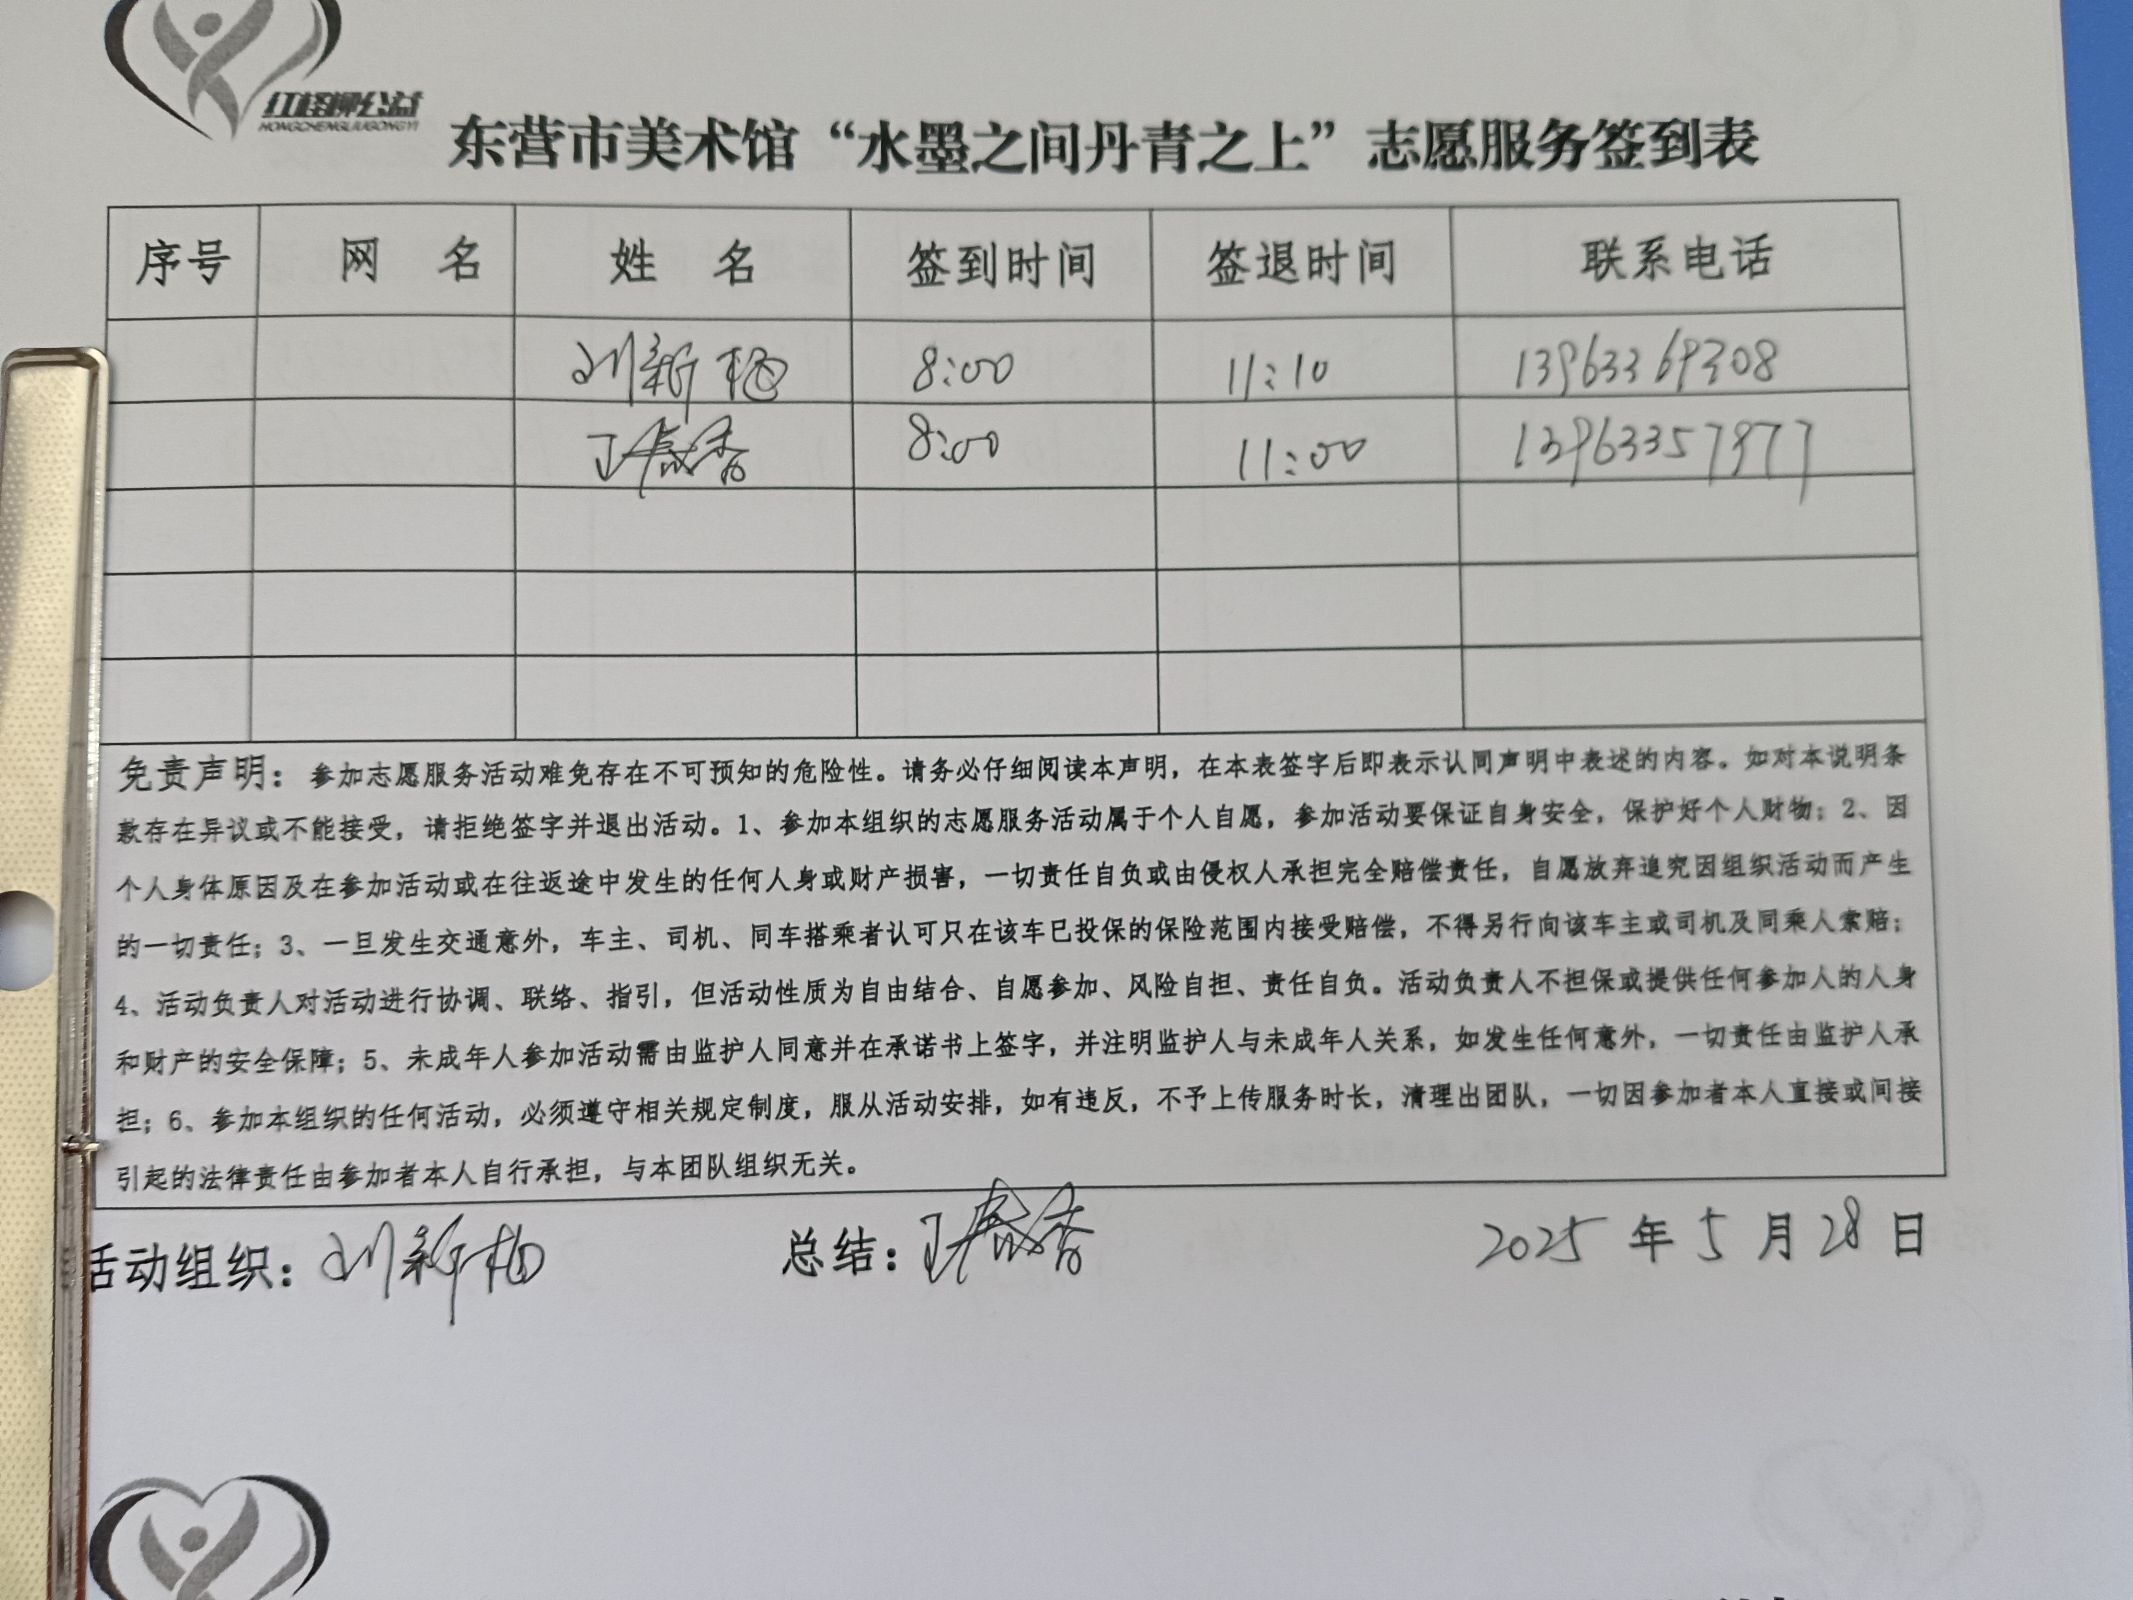 红柽柳公益
HONGCHENGLIUGONGYI
东营市美术馆“水墨之间丹青之上”志愿服务签到表
序号 网 名 姓 名 签到时间 签退时间 联系电话
刘新梅 8:00 11:10 13963369308
8:00 11:00 13963357977
免责声明：参加志愿服务活动难免存在不可预知的危险性。请务必仔细阅读本声明，在本表签字后即表示认同声明中表述的内容。如对本说明条
款存在异议或不能接受，请拒绝签字并退出活动。1、参加本组织的志愿服务活动属于个人自愿，参加活动要保证自身安全，保护好个人财物；2、因
个人身体原因及在参加活动或在往返途中发生的任何人身或财产损害，一切责任自负或由侵权人承担完全赔偿责任，自愿放弃追究因组织活动而产生
的一切责任；3、一旦发生交通意外，车主、司机、同车搭乘者认可只在该车已投保的保险范围内接受赔偿，不得另行向该车主或司机及同乘人索赔；
4、活动负责人对活动进行协调、联络、指引，但活动性质为自由结合、自愿参加、风险自担、责任自负。活动负责人不担保或提供任何参加人的人身
和财产的安全保障；5、未成年人参加活动需由监护人同意并在承诺书上签字，并注明监护人与未成年人关系，如发生任何意外，一切责任由监护人承
担；6、参加本组织的任何活动，必须遵守相关规定制度，服从活动安排，如有违反，不予上传服务时长，清理出团队，一切因参加者本人直接或间接
引起的法律责任由参加者本人自行承担，与本团队组织无关。
活动组织：刘新梅 总结： 2025 年 5 月 28 日